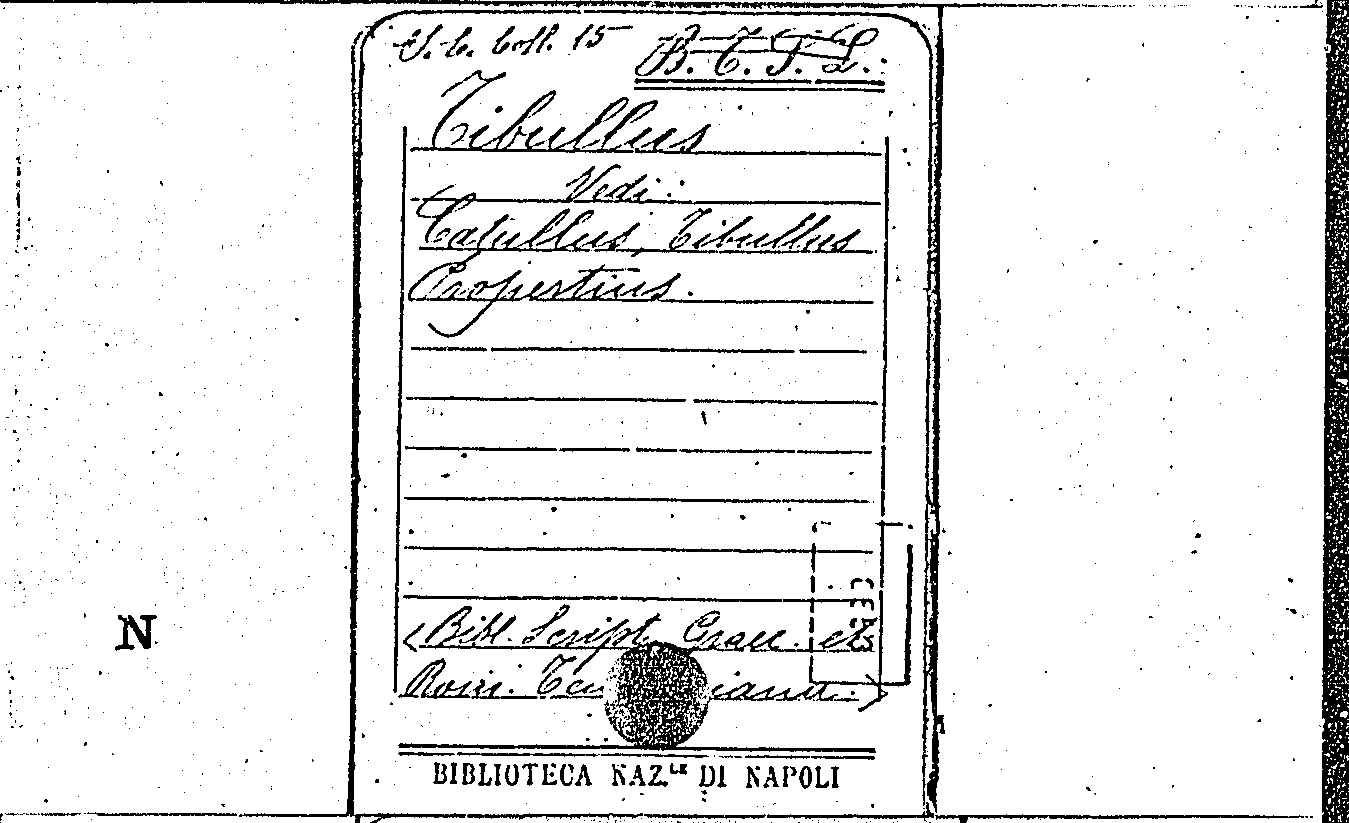 S. C. Coll. 15 B. C. T. L.
Tibullus
Vedi:
Catullus, Tibullus
Propertius.
(Bibl. Script. Graec. et
Rom. Teu ianae)
N
BIBLIOTECA NAZ.LE DI NAPOLI